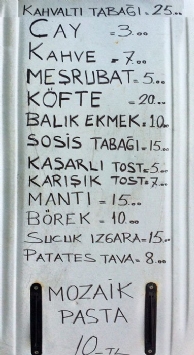 KAHVALTI TABAĞI = 25...
ÇAY = 3.00
KAHVE - 7...
MEŞRUBAT = 5...
KÖFTE = 20...
BALIK EKMEK = 10...
SOSİS TABAĞI = 15...
KAŞARLI TOST = 5...
KARIŞIK TOST = 7...
MANTI = 15...
BÖREK = 10...
SUCUK IZGARA = 15...
PATATES TAVA = 8...
MOZAİK
PASTA
10-TL